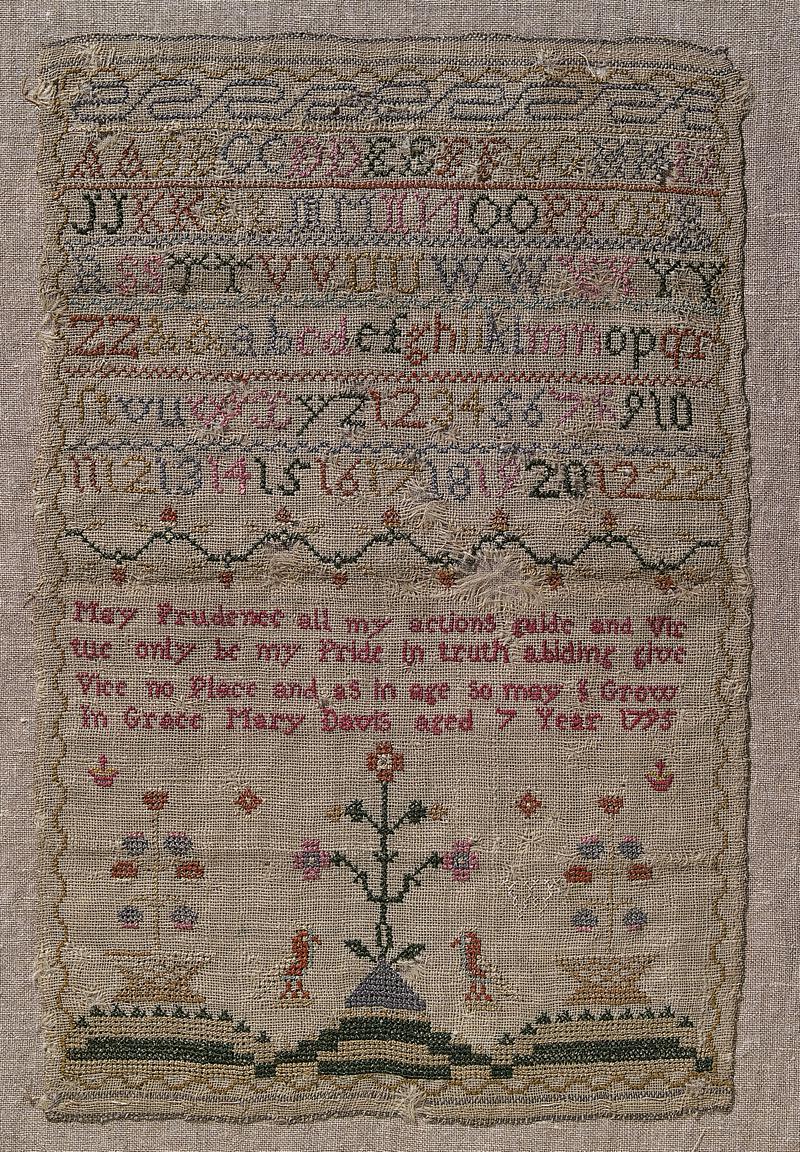 A A B B C C D D E E F F G G H H I I
J J K K L L M M N N O O P P Q Q R
R S S T T V V U U W W X X Y Y
Z Z & & a b c d e f g h i k l m n o p q r
ſ t v u w x y z 1 2 3 4 5 6 7 8 9 10
11 12 13 14 15 16 17 18 19 20 12 22
May Prudence all my actions guide and Vir
tue only be my Pride in truth abiding give
Vice no Place and as in age so may I Grow
In Grace Mary Davis aged 7 Year 1795